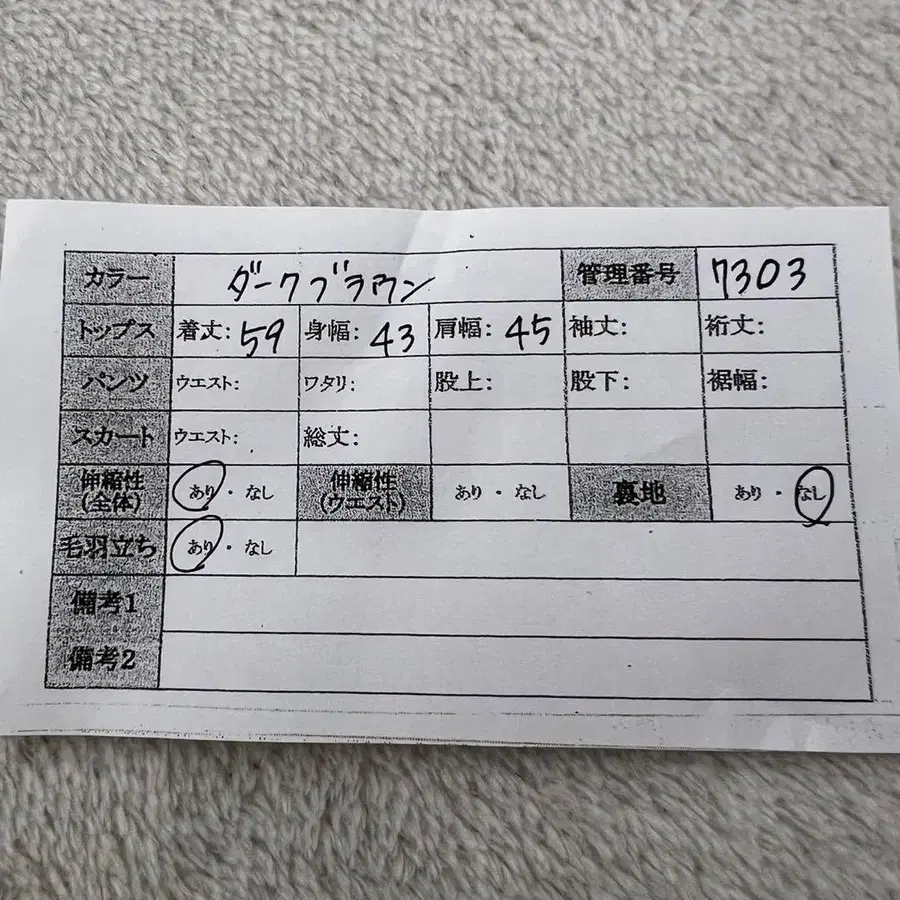 カラー ダークブラウン 管理番号 7303
トップス 着丈: 59 身幅: 43 肩幅: 45 袖丈: 裄丈:
パンツ ウエスト: ワタリ: 股上: 股下: 裾幅:
スカート ウエスト: 総丈:
伸縮性 (全体) あり・なし 伸縮性 (ウエスト) あり・なし 裏地 あり・なし
毛羽立ち あり・なし
備考1
備考2